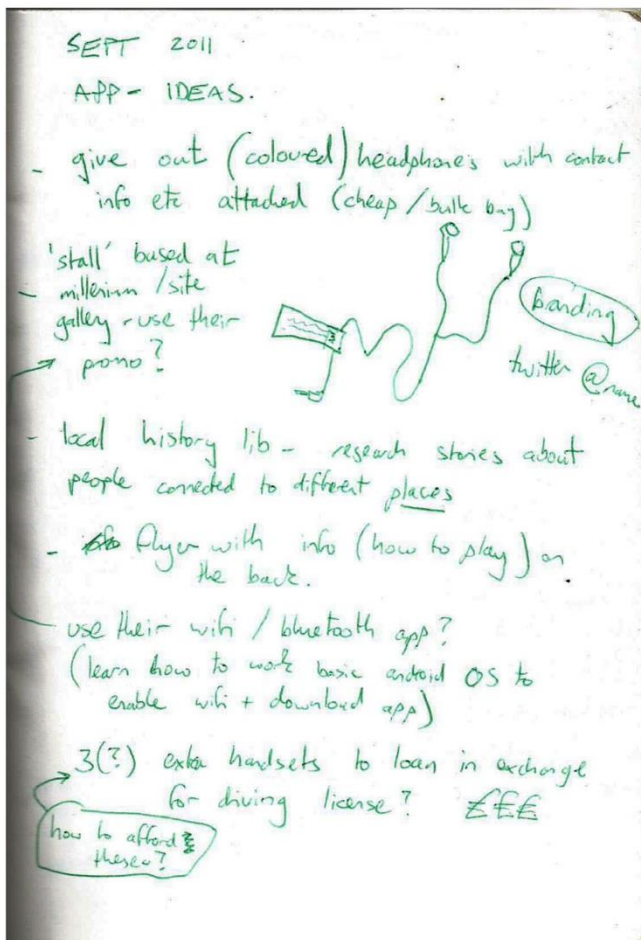 SEPT 2011
APP - IDEAS.
- give out (coloured) headphones with contact
info etc attached (cheap / bulk buy)
'stall' based at
- millenium / site
gallery - use their
promo?
branding
twitter @name
- local history lib - research stories about
people connected to different places
- flyer with info (how to play) on
the back.
use their wifi / bluetooth app?
(learn how to work basic android OS to
enable wifi + download app)
3(?) extra handsets to loan in exchange
for driving license? £££
how to afford
these?